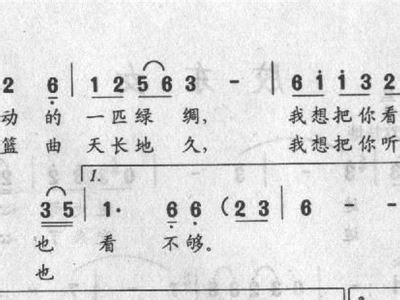 2 6 | 1 2 5 6 3 - | 6 1 1 3 2
动 的 一 匹 绿 绸， 我 想 把 你 看
篮 曲 天 长 地 久， 我 想 把 你 听
1.
3 5 | 1· 6 6 (2 3 | 6 - -
也 看 不 够。
也